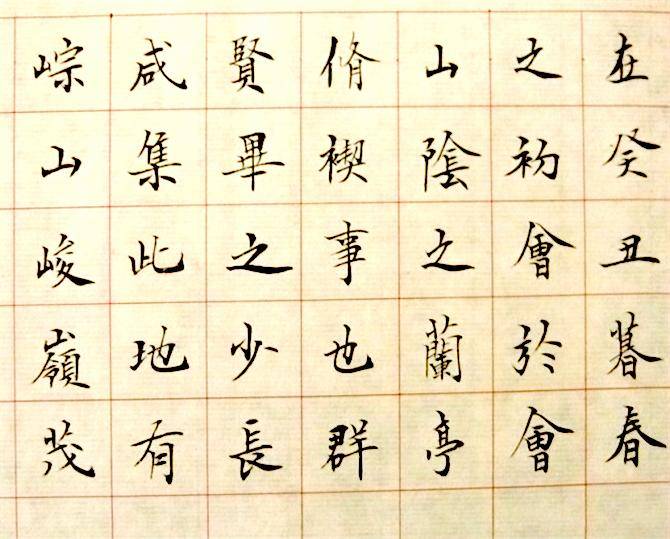 在癸丑暮春
之初會於會
山陰之蘭亭
脩禊事也群
賢畢之少長
咸集此地有
崇山峻嶺茂